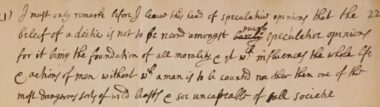 1) I must only remark before I leave this head of speculative opinions that the 22
beleif of a deitie is not to be recond amongst purely speculative opinions
for it being the foundation of all morality & yt wch influences the whole life
& actions of men without wch a man is to be counted noe other then one of the
most dangerous sorts of wild beasts & soe uncapeable of all societie